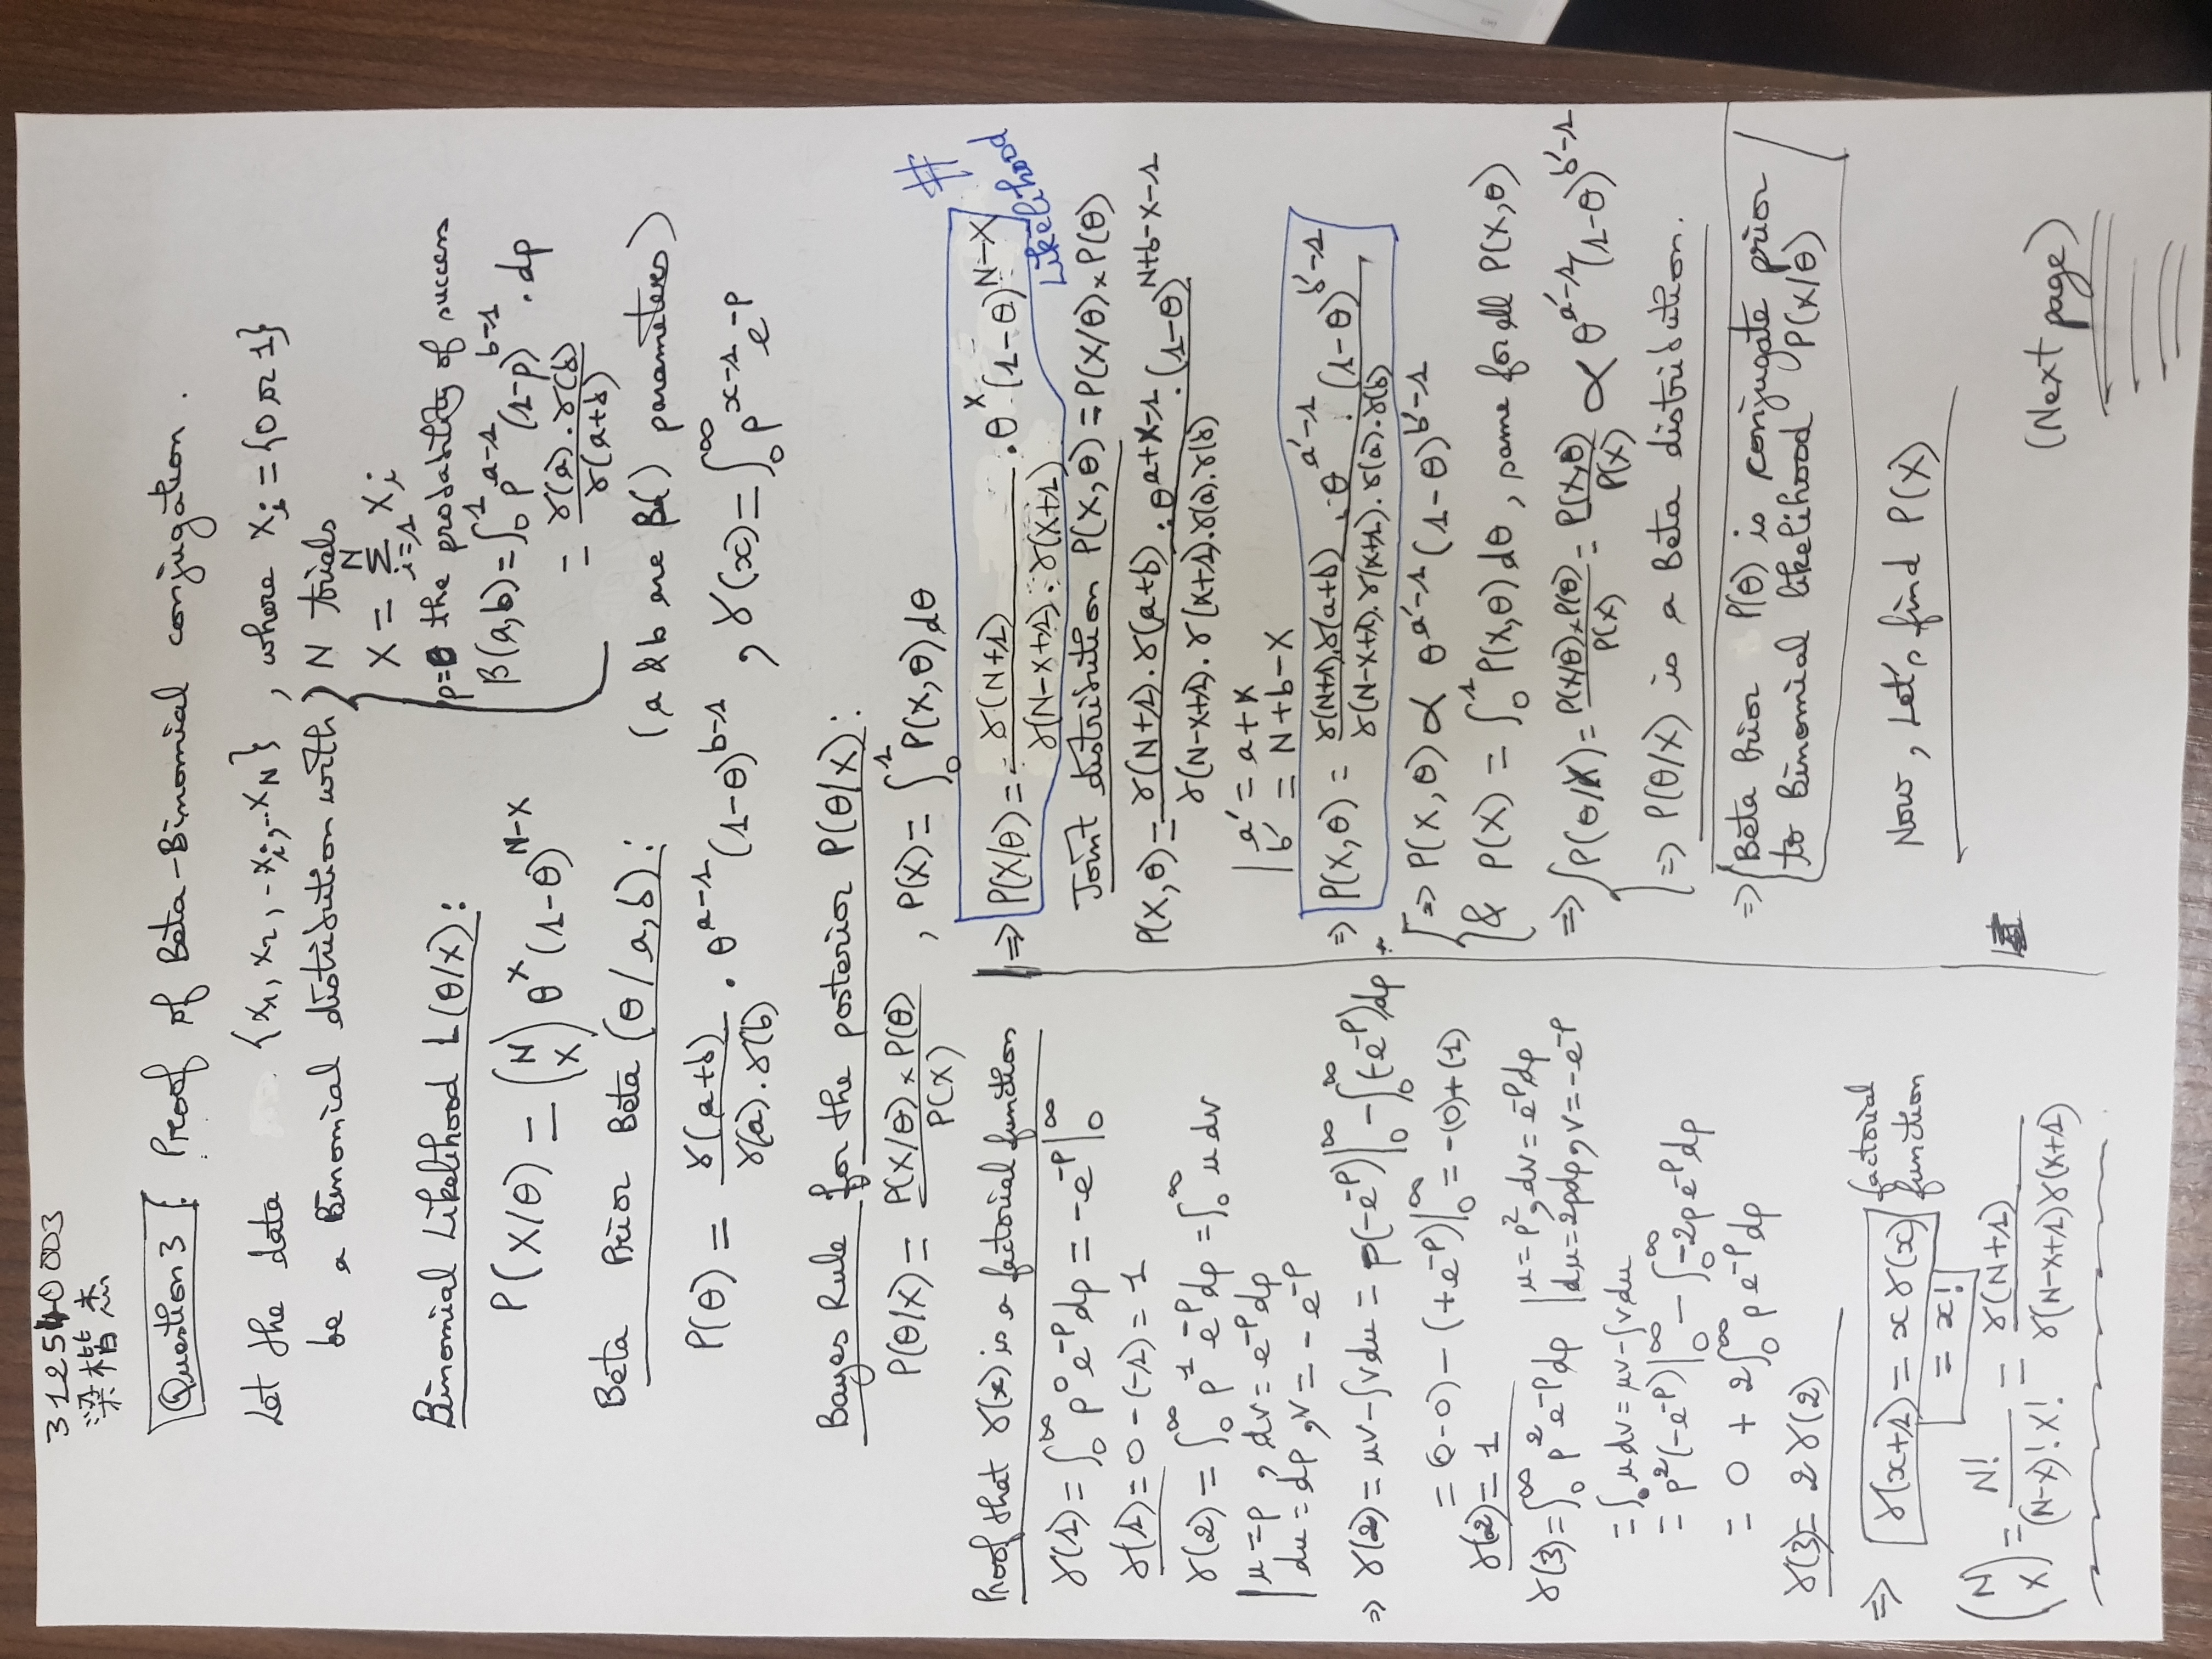 312540003
梁楷杰
Question 3 : Proof of Beta-Binomial conjugation.
Let the data {x₁, x₂, ..xᵢ,..x_N} , where xᵢ = {0 or 1}
be a Binomial distribution with { N trials
X = Σ_{i=1}^{N} xᵢ
p=θ the probability of success
β(a,b) = ∫₀¹ p^{a-1} (1-p)^{b-1} . dp
= γ(a) . γ(b) / γ(a+b)
Binomial Likelihood L(θ/X) :
P(X/θ) = (N X) θ^X (1-θ)^{N-X}
Beta Prior Beta (θ/a,b) : (a & b are β() parameters)
P(θ) = γ(a+b) / γ(a) . γ(b) . θ^{a-1} (1-θ)^{b-1} , γ(x) = ∫₀^∞ p^{x-1} e^{-p}
Bayes Rule for the posterior P(θ/X) :
P(θ/X) = P(X/θ) × P(θ) / P(X) , P(X) = ∫₀¹ P(X,θ) dθ
Proof that γ(x) is a factorial function
γ(1) = ∫₀^∞ p⁰ e^{-p} dp = -e^{-p} |₀^∞
γ(1) = 0 - (-1) = 1
γ(2) = ∫₀^∞ p¹ e^{-p} dp = ∫₀^∞ u dv
| u = p , dv = e^{-p} dp
| du = dp , v = - e^{-p}
⇒ γ(2) = uv - ∫v du = p(-e^{-p}) |₀^∞ - ∫₀^∞ (-e^{-p}) dp
= (0-0) - (+e^{-p}) |₀^∞ = -(0)+(1)
γ(2) = 1
γ(3) = ∫₀^∞ p² e^{-p} dp | u = p², dv = e^{-p} dp
| du = 2p dp, v = -e^{-p}
= ∫₀ u dv = uv - ∫v du
= p²(-e^{-p}) |₀^∞ - ∫₀^∞ -2p e^{-p} dp
= 0 + 2∫₀^∞ p e^{-p} dp
γ(3) = 2 γ(2)
⇒ γ(x+1) = x γ(x) factorial function
= x!
(N X) = N! / (N-X)! X! = γ(N+1) / γ(N-X+1) γ(X+1)
⇒ P(X/θ) = γ(N+1) / γ(N-X+1) . γ(X+1) . θ^X (1-θ)^{N-X}
# Likelihood
Joint distribution P(X,θ) = P(X/θ) × P(θ)
P(X,θ) = γ(N+1) . γ(a+b) / γ(N-X+1) . γ(X+1) . γ(a) . γ(b) . θ^{a+X-1} . (1-θ)^{N+b-X-1}
| a' = a + X
| b' = N + b - X
⇒ P(X,θ) = γ(N+1) . γ(a+b) / γ(N-X+1) . γ(X+1) . γ(a) . γ(b) . θ^{a'-1} . (1-θ)^{b'-1}
⇒ P(X,θ) ∝ θ^{a'-1} (1-θ)^{b'-1}
& P(X) = ∫₀¹ P(X,θ) dθ , same for all P(X,θ)
⇒ P(θ/X) = P(X/θ) × P(θ) / P(X) = P(X,θ) / P(X) ∝ θ^{a'-1} (1-θ)^{b'-1}
⇒ P(θ/X) is a Beta distribution.
⇒ Beta Prior P(θ) is conjugate prior
to Binomial likelihood P(X/θ)
Now, Let's find P(X)
(Next page)